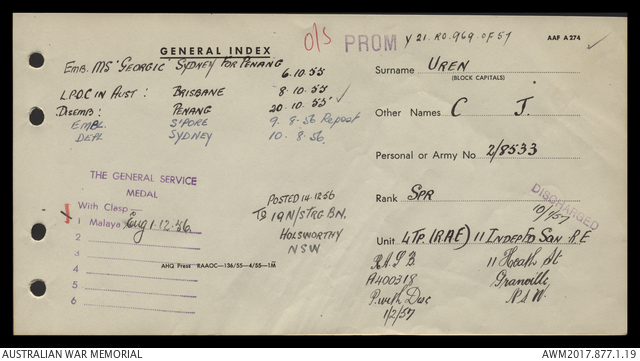 GENERAL INDEX
O/S PROM Y 21. RO. 969. OF 57 AAF A 274
EMB. MS 'GEORGIC' SYDNEY FOR PENANG
6.10.55
L.P.O.C IN AUST : BRISBANE 8.10.55
DISEMB : PENANG 20.10.55
EMBL. S'PORE 9.8.56 Repat
DEPL SYDNEY 10.8.56
THE GENERAL SERVICE
MEDAL
With Clasp
1 Malaya 1.12.56
2
3
4
5
6
POSTED 14.12.56
TO 19 N/STRG BN.
HOLSWORTHY
NSW
AHQ Press RAAOC—136/55—4/55—1M
Surname UREN
(BLOCK CAPITALS)
Other Names C J.
Personal or Army No 2/8533
Rank SPR
DISCHARGED
10/1/57
Unit 4 TP. (RAE) 11 INDEP FD SQN R E
A400318
1/2/57
11 Heath St
Granville
N.S.W.
AUSTRALIAN WAR MEMORIAL
AWM2017.877.1.19